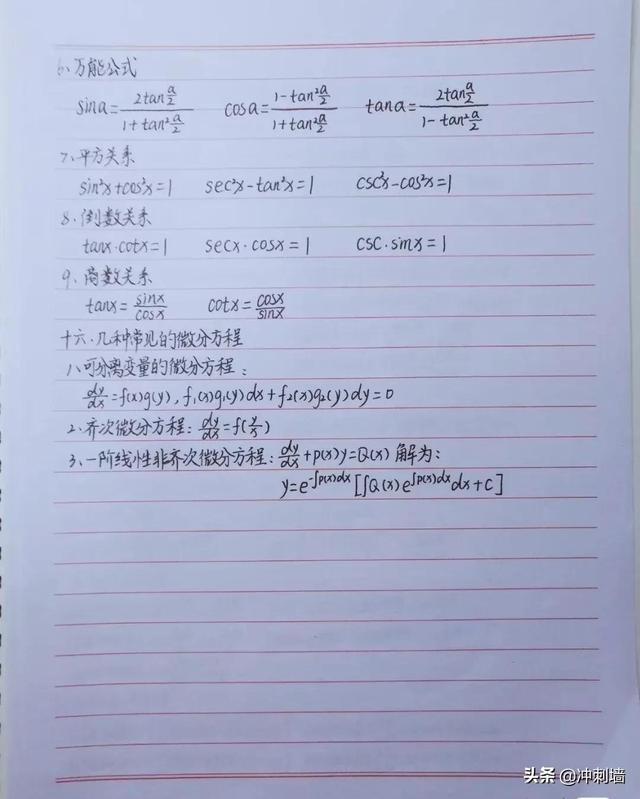 6、万能公式
sina=2tan(a/2)/(1+tan²(a/2))  cosa=(1-tan²(a/2))/(1+tan²(a/2))  tana=2tan(a/2)/(1-tan²(a/2))
7、平方关系
sin²x+cos²x=1  sec²x-tan²x=1  csc²x-cos²x=1
8、倒数关系
tanx·cotx=1  secx·cosx=1  csc·sinx=1
9、商数关系
tanx=sinx/cosx  cotx=cosx/sinx
十六、几种常见的微分方程
1、可分离变量的微分方程:
dy/dx=f(x)g(y), f₁(x)g₁(y)dx+f₂(x)g₂(y)dy=0
2、齐次微分方程:dy/dx=f(y/x)
3、一阶线性非齐次微分方程:dy/dx+p(x)y=Q(x) 解为:
y=e^(-∫p(x)dx)[∫Q(x)e^(∫p(x)dx)dx+c]
头条 @冲刺墙